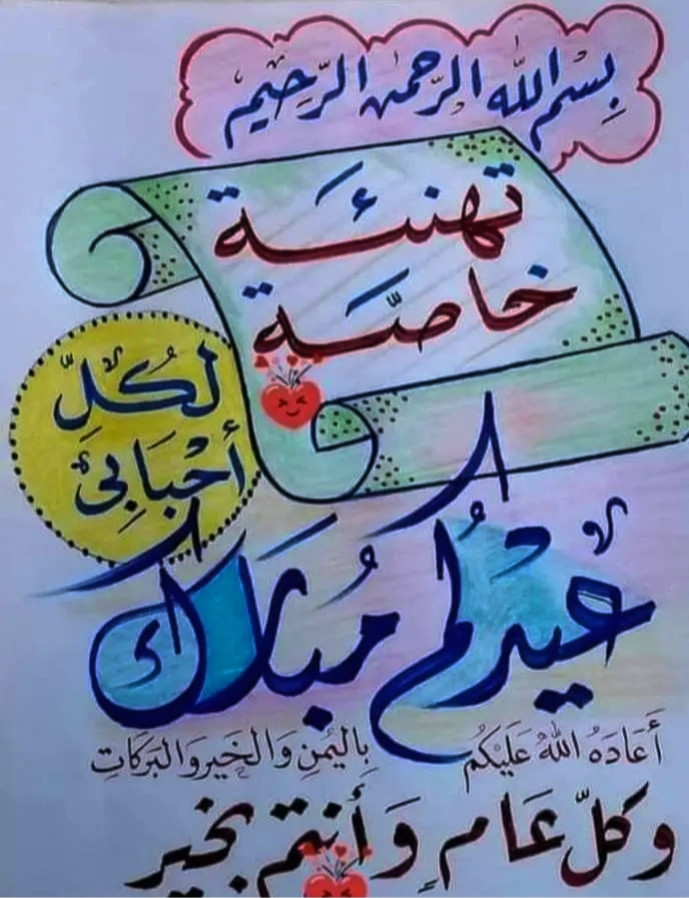 بِسْمِ اللّٰهِ الرَّحْمٰنِ الرَّحِيمِ
تهنئة
خاصّة
لكُلِّ
أَحْبَابِي
عيدكُم مُبَارَك
أَعَادَهُ اللّٰهُ عَلَيْكُم بِاليُمنِ وَالخَيرِ وَالبَرَكَاتِ
وَكلّ عَامٍ وَأَنتم بخير